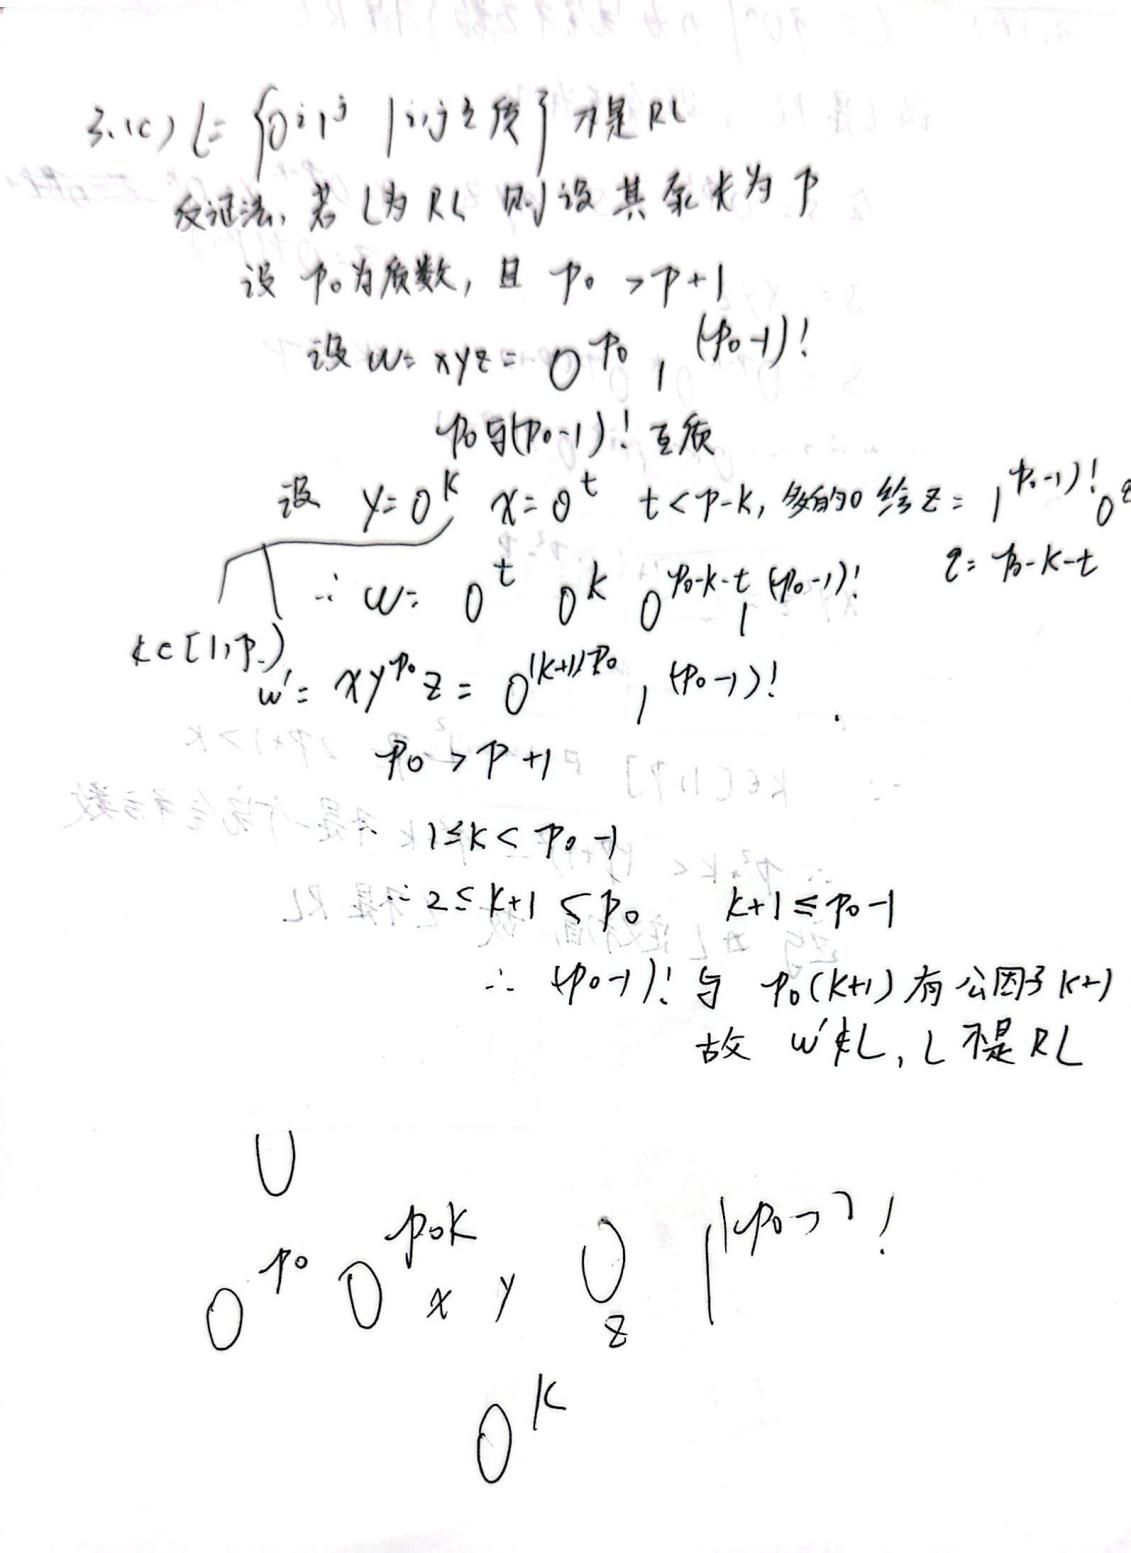 3.(c) L = {0^i 1^j | i,j互质} 不是RL
反证法, 若L为RL 则设其泵长为p
设 p₀为质数, 且 p₀ > p+1
设 w = xyz = 0^p₀ 1^(p₀-1)!
p₀与(p₀-1)! 互质
设 y=0^k x=0^t t<p-k, 多的0给z = 1^(p₀-1)! 0
= p₀-k-t
∴ w = 0^t 0^k 0^p₀-k-t 1^(p₀-1)!
k∈[1,p]
w' = xy^p₀ z = 0^(k+1)p₀ 1^(p₀-1)!
p₀ > p+1
1≤k<p₀-1
∴ 2≤k+1<p₀ k+1≤p₀-1
∴ (p₀-1)! 与 p₀(k+1) 有公因子k+1
故 w'∉L, L不是RL
0
0^p₀ 0^p₀k x y 0 z 1^(p₀-1)!
0^k